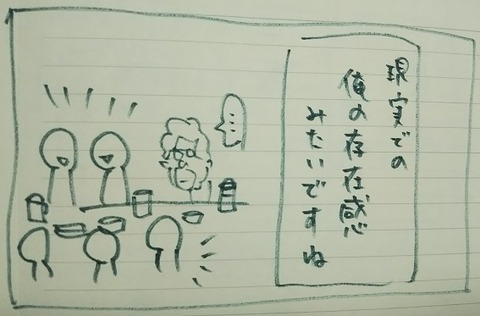 現実での
俺の存在感
みたいですね
…